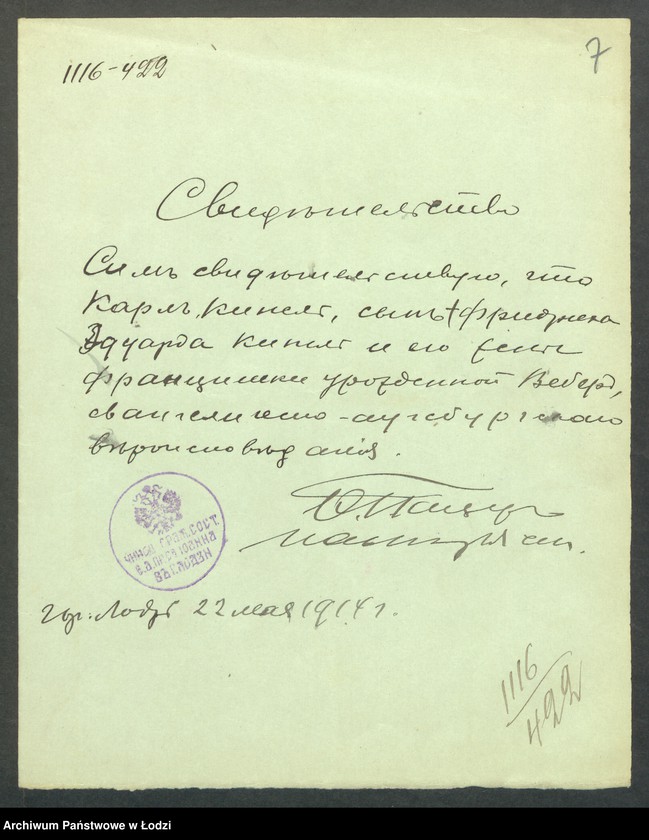 1116-422
7
Свидѣтельство
Симъ свидѣтельствую, что
Карлъ Кинелт, сынъ † Фридриха
Эдуарда Кинелт и его жены
Францишки урожденной Веберъ,
евангелическо-аугсбургскаго
вѣроисповѣданія.
чинов. граж. сост.
Въ г. Лодзи
гор. Лодзь 22 мая 1914 г.
1116/422
Archiwum Państwowe w Łodzi